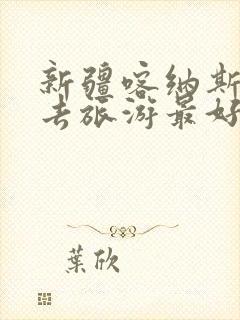 新疆喀纳斯
去旅游最好
葉欣